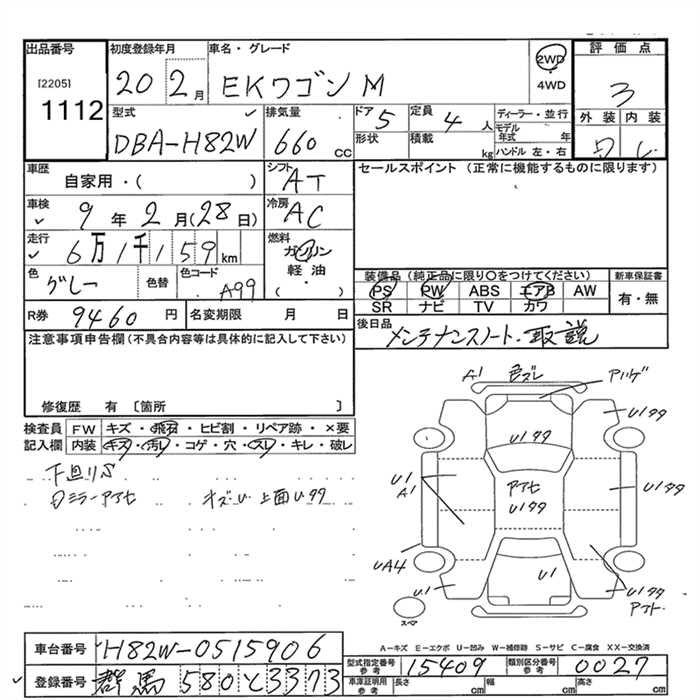 出品番号
[2205]
1112
初度登録年月
20 2月
車名・グレード
EKワゴン M
2WD
・
4WD
評価点
3
外装 内装
型式
DBA-H82W
排気量
660 CC
ドア 5
形状
定員 4 人
積載 kg
ディーラー・並行
モデル年式 年
ハンドル 左・右
車歴
自家用・( )
シフト
AT
セールスポイント (正常に機能するものに限ります)
車検
9年2月(28日)
冷房
AC
走行
6万1千159km
燃料
ガソリン
軽油
( )
色
グレー
色替
色コード
A99
装備品 (純正品に限り○をつけてください)
PS PW ABS エアB AW
SR ナビ TV カワ
新車保証書
有・無
R券 9460円
名変期限 月 日
後日品
メンテナンスノート・取説
注意事項申告欄(不具合内容等は具体的に記入して下さい)
修復歴 有 〔箇所 〕
検査員記入欄
FW キズ・飛石・ヒビ割・リペア跡・×要
内装 キズ・汚レ・コゲ・穴・スレ・キレ・破レ
下廻りS
A1 色ズレ
U1タタ
U1タタ
U1
A1
アアセ
U1タタ
U1タタ
UA4
U1
U1
U1タタ
スペア
A-キズ E-エクボ U-凹み W-補修跡 S-サビ C-腐食 XX-交換済
車台番号 H82W-0515906
登録番号 群馬 580 と 3373
型式指定番号 参考 15409
類別区分番号 参考 0027
車庫証明用 参考 長さ cm 幅 cm 高さ cm